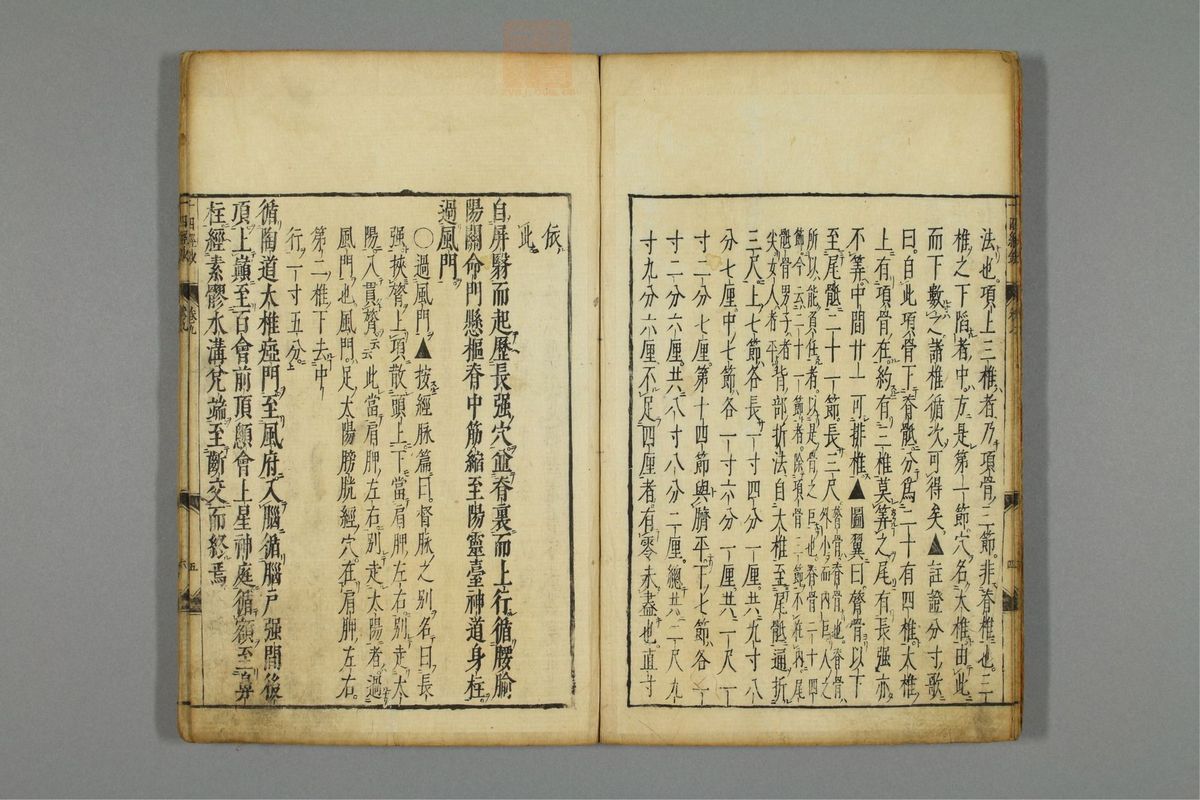 法也。項上三椎者。乃項骨三節。非脊椎也。三
椎之下陷者中。方是第一節。穴名大椎。由此
而下數之。諸椎循次可得矣。▲註證分寸歌
曰。自此項骨下脊骶。分爲二十有四椎。大椎
上有項骨在。約有三椎莫筭之。尾有長強亦
不筭。中間廿一可排椎。▲圖翼曰。膂骨以下
至尾骶二十一節。長三尺。外小而內巨。人之
所以能負任者。以是骨之巨也。脊骨二十四
節。今云二十一節者。除項骨三節不在內。尾
骶骨男子者尖。女人者平。背部折法。自大椎至尾骶通折
三尺。上七節各長一寸四分一厘。共九寸八
分七厘。中七節各一寸六分一厘。共一尺一
寸二分七厘。第十四節與臍平。下七節各一
寸二分六厘。共八寸八分二厘。總共二尺九
寸九分六厘。不足四厘者。有零未盡也。直寸
依
此
自屏翳而起。歷長强穴。並脊裏而上行。循腰腧
陽關命門懸樞脊中筋縮至陽靈臺神道身柱
過風門。
○過風門。▲按經脉篇曰。督脉之別。名曰長
强。挾膂上項。散頭上。下當肩胛左右。別走太
陽。入貫膂。云云。此當肩胛左右。別走太陽者。過
風門也。風門。足太陽膀胱經穴。在肩胛左右。
第二椎下去中
行一寸五分。
循陶道大椎瘂門。至風府入腦。循腦戶强間後
頂上巔至百會前頂顖會上星神庭。循額至鼻
柱。經素髎水溝兌端。至齗交而終焉。